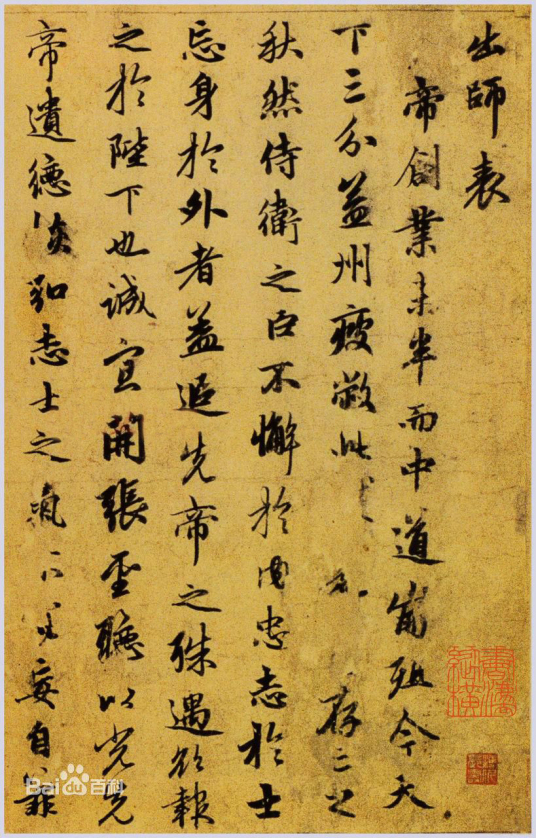 出師表
帝創業未半而中道崩殂今天
下三分益州疲敝此存亡之
秋然侍衛之臣不懈於内忠志於士
忘身於外者蓋追先帝之殊遇欲報
之於陛下也誠宜開張聖聽以光先
帝遺德恢弘志士之氣不妄自菲
Bai百科